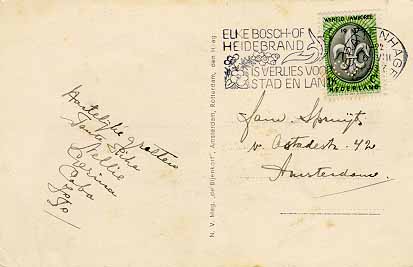 Hartelijke groeten
Tante
Nellie
Gerina
Coba
Jo
N. V. Mag. „De Bijenkorf", Amsterdam, Rotterdam, den Haag
ELKE BOSCH-OF
HEIDEBRAND
IS VERLIES VOOR
STAD EN LAND
NHAGE
VIII
WERELD JAMBOREE
NEDERLAND
Fam. Spruijt
v. Ostadestr. 42
Amsterdam.